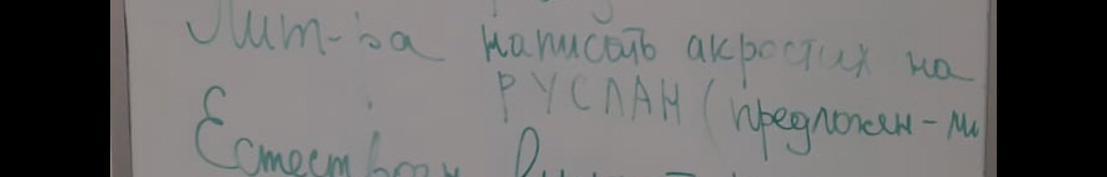 Лит-ва написать акростих на
РУСЛАН (предложен-ми
Естествозн